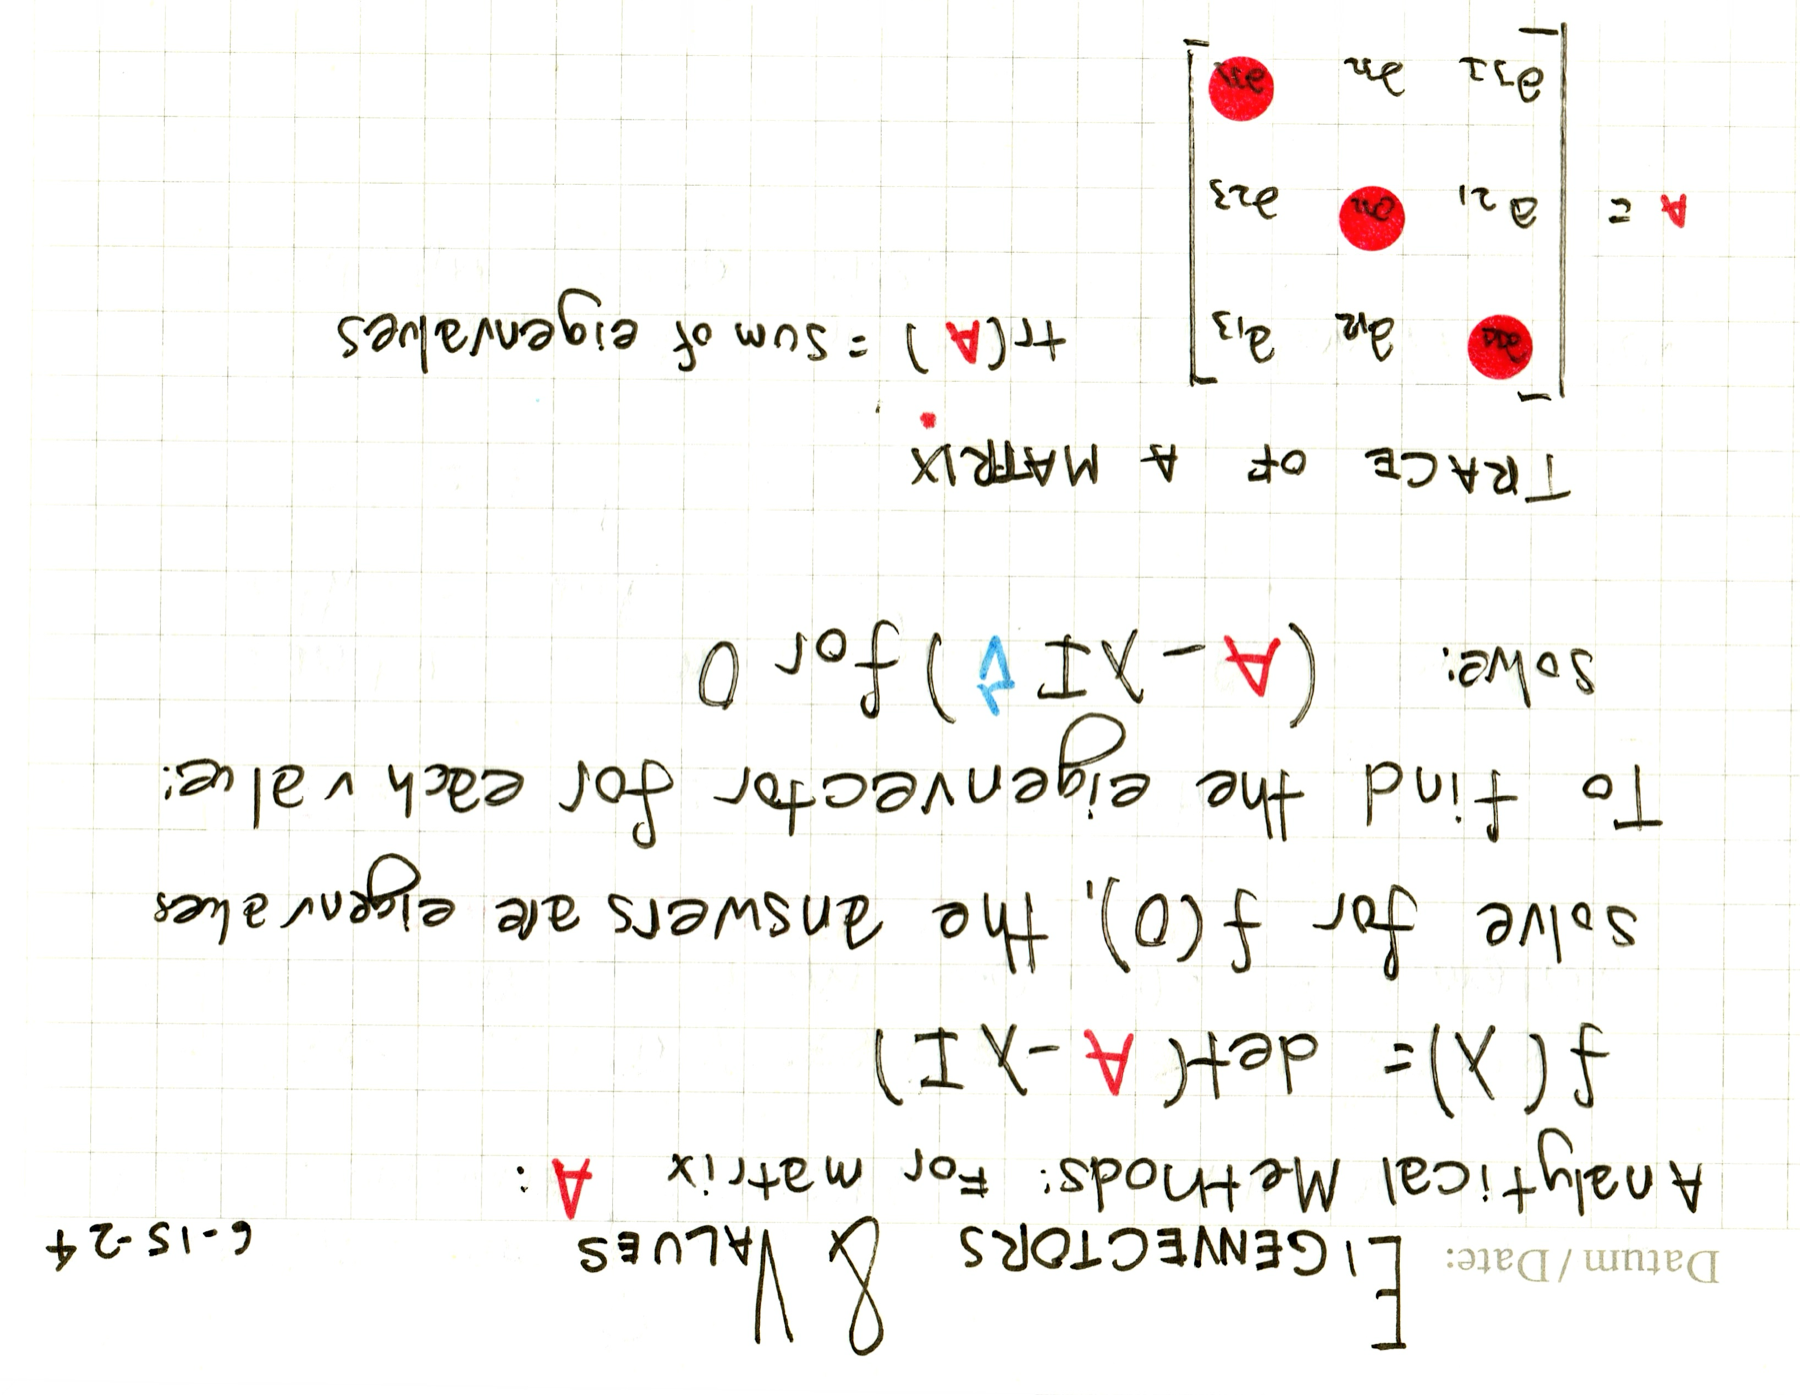 Datum / Date: EIGENVECTORS & VALUES 6-15-24
Analytical Methods: For matrix A:
f(λ) = det(A - λI)
solve for f(0), the answers are eigenvalues
To find the eigenvector for each value:
solve: (A - λI v⃗) for 0
TRACE OF A MATRIX
a11 a12 a13 tr(A) = sum of eigenvalues
A = a21 a22 a23
a31 a32 a33